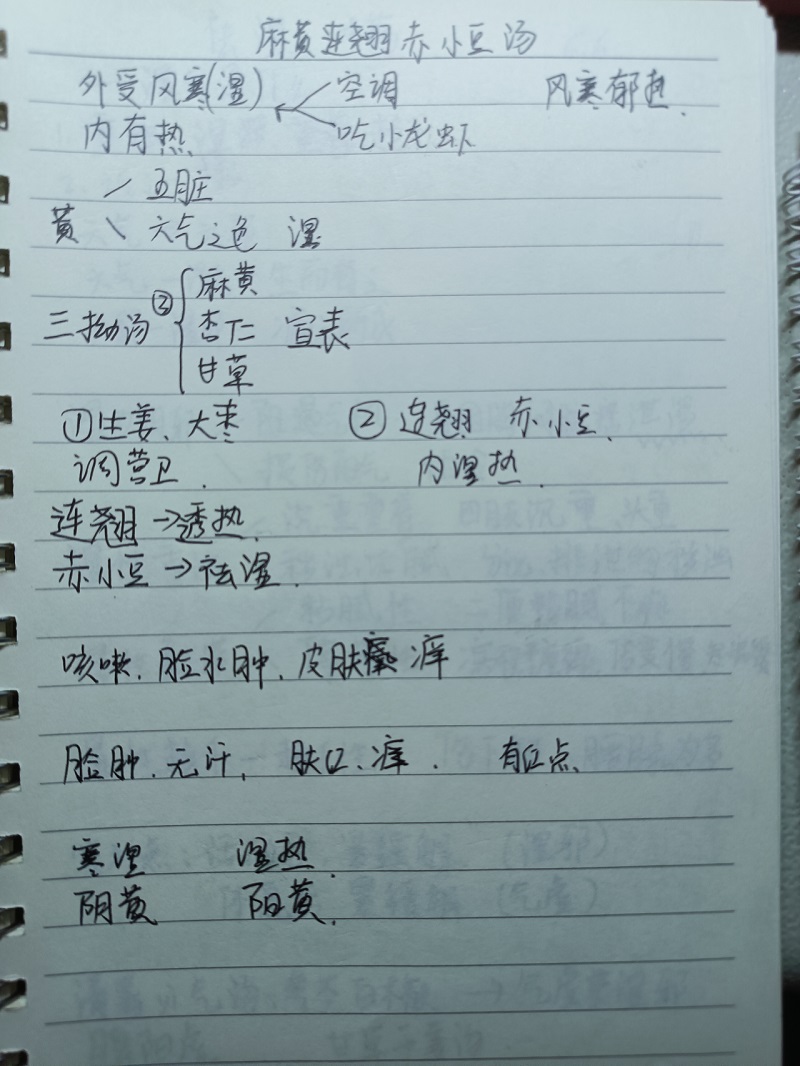 麻黄连翘赤小豆汤
外受风寒(湿) 空调 风寒郁热.
内有热 吃小龙虾
五脏
黄 六气之色 湿
三拗汤 ③ 麻黄
杏仁 宣表
甘草
①生姜、大枣 ②连翘 赤小豆.
调营卫. 内湿热.
连翘→透热.
赤小豆→祛湿.
咳嗽.脸水肿.皮肤瘙痒
脸肿.无汗, 肤红、痒. 有红点、
寒湿 湿热.
阴黄 阳黄.